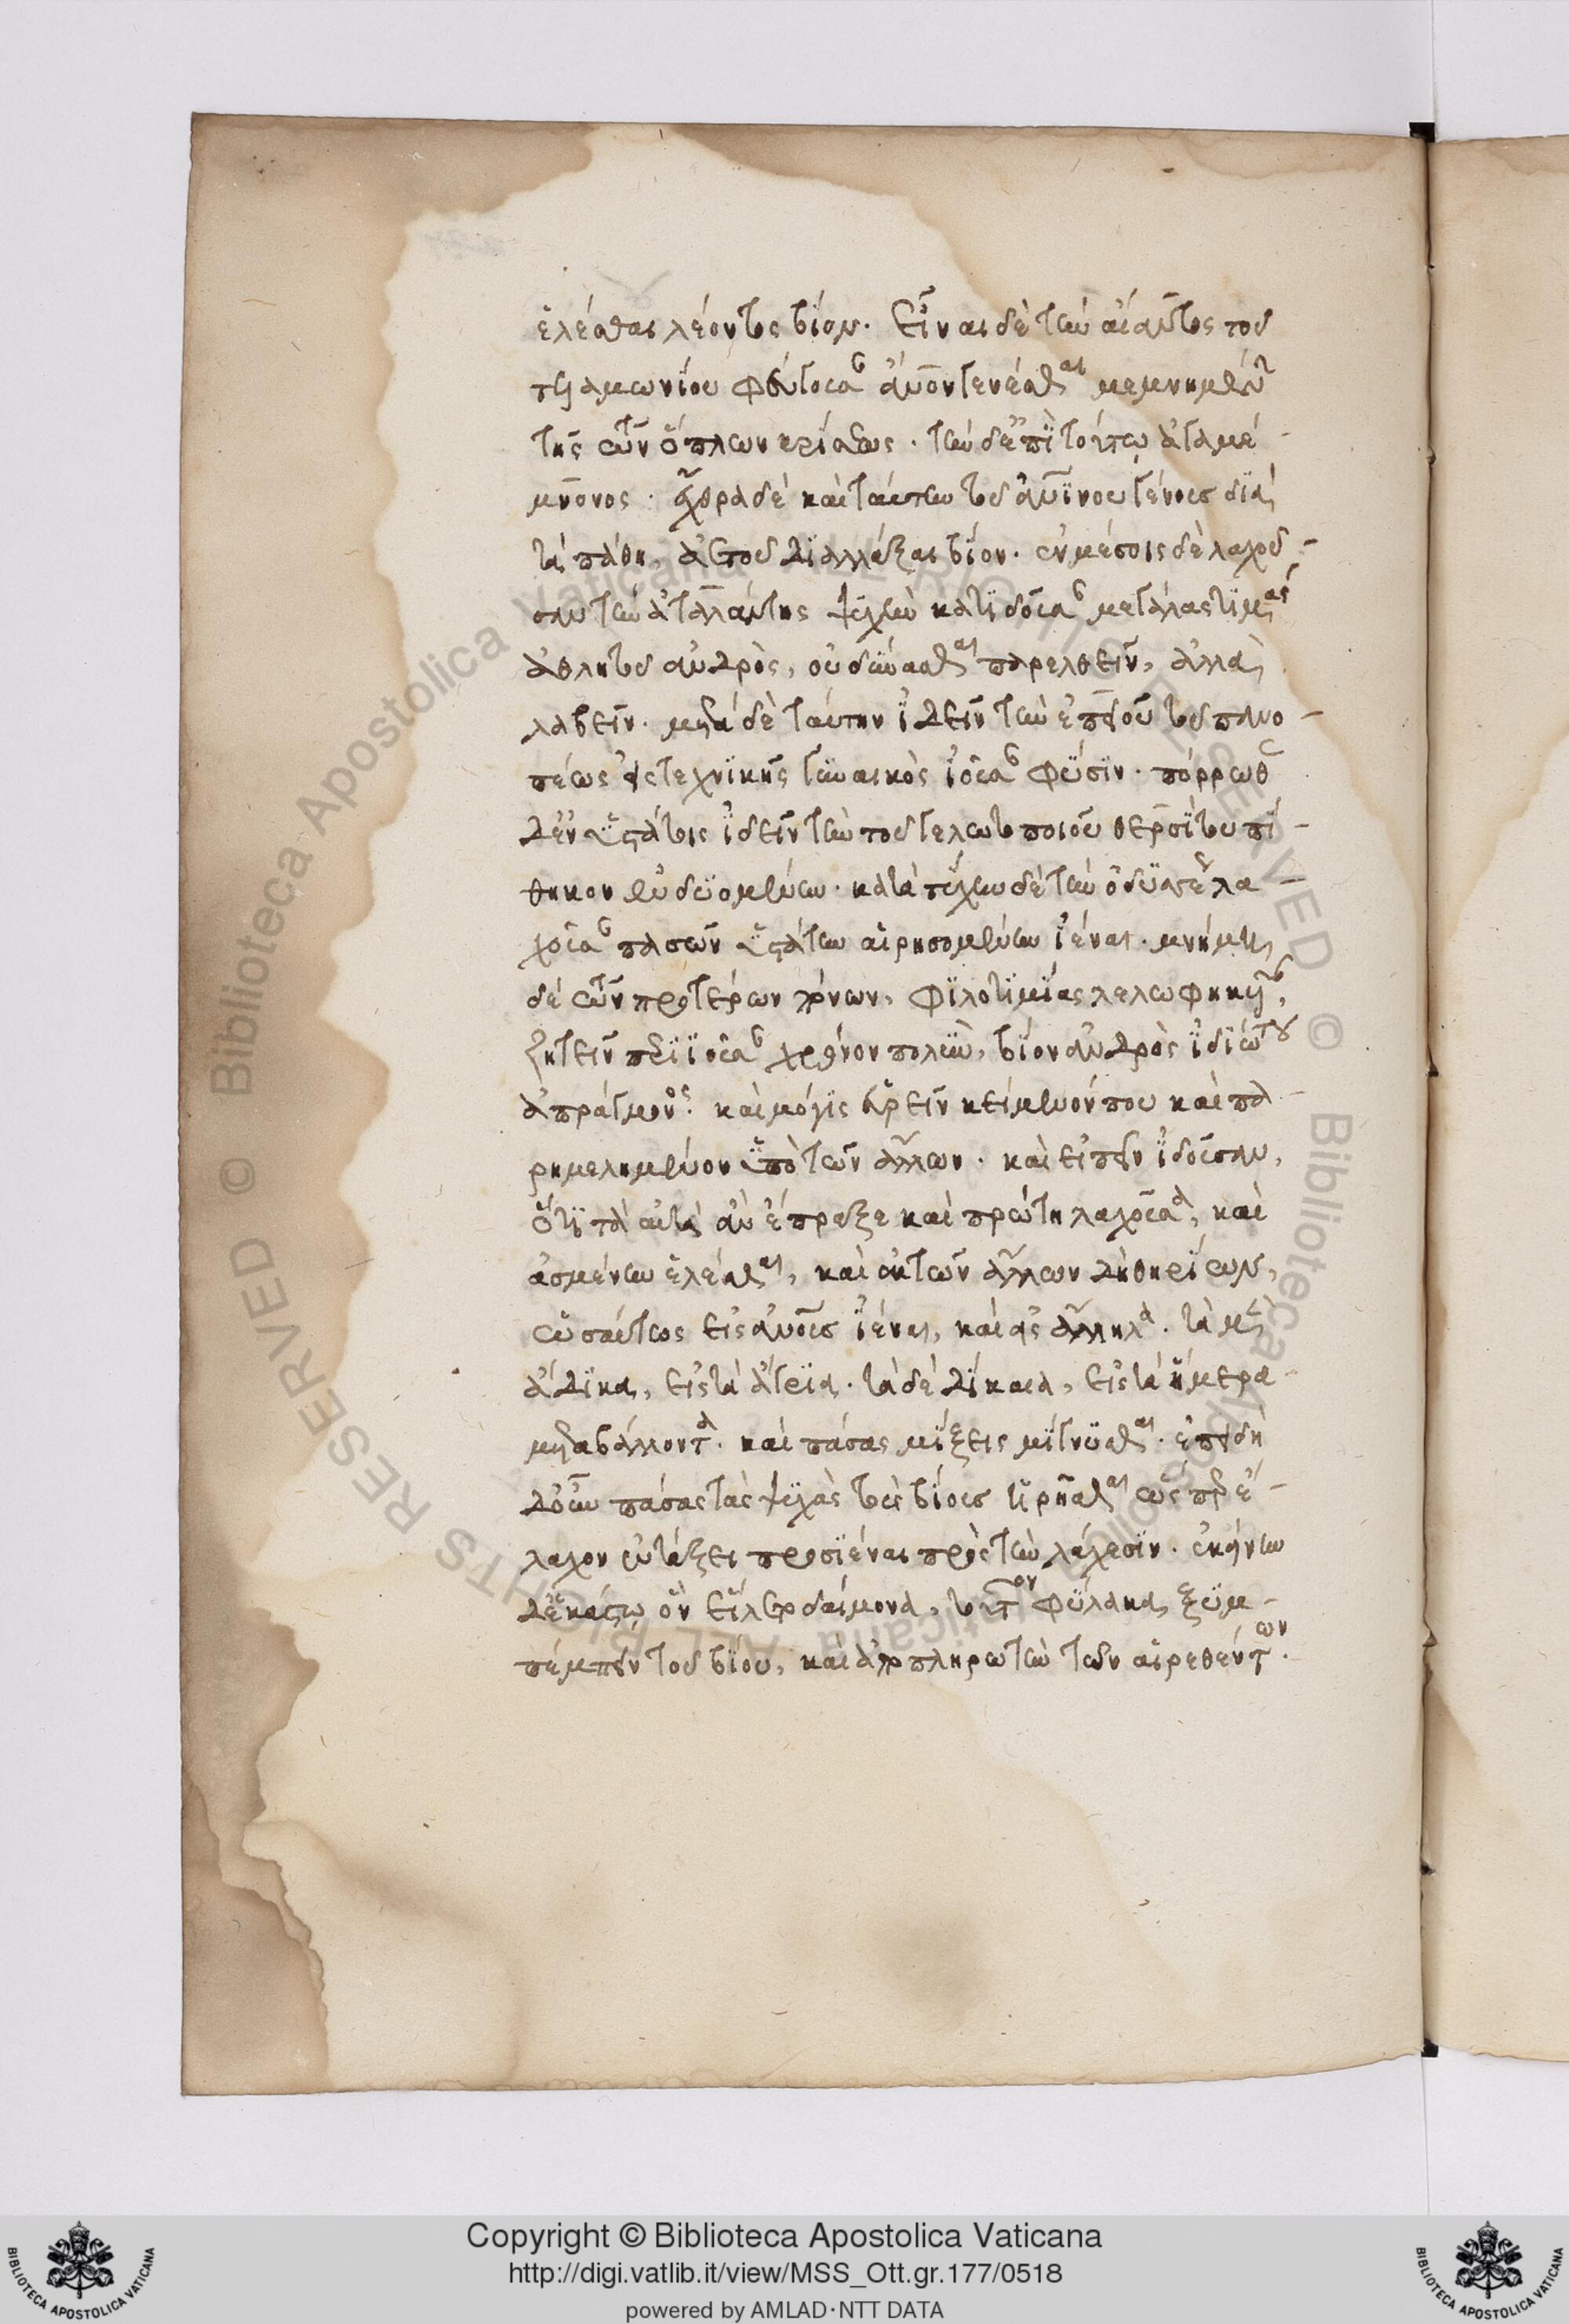 ἑλέσθαι λέοντος βίον. εἶναι δὲ τὴν αἴαντος τοῦ
τελαμωνίου φεύγουσαν ἄνθρωπον γενέσθαι μεμνημένην
τῆς τῶν ὅπλων κρίσεως. τὴν δ' ἐπὶ τούτῳ ἀγαμέ-
μνονος. ἔχθρα δὲ καὶ ταύτην τοῦ ἀνθρωπίνου γένους διὰ
τὰ πάθη, ἀετοῦ διαλλάξαι βίον. ἐν μέσοις δὲ λαχοῦ-
σαν τὴν ἀταλάντης ψυχὴν κατιδοῦσαν μεγάλας τιμὰς
ἀθλητοῦ ἀνδρὸς, οὐ δύνασθαι παρελθεῖν, ἀλλὰ
λαβεῖν. μετὰ δὲ ταύτην ἰδεῖν τὴν ἐπειοῦ τοῦ πανο-
πέως εἰς τεχνικῆς γυναικὸς ἰοῦσαν φύσιν. πόρρωθεν
δ' ἐν ὑστάτοις ἰδεῖν τὴν τοῦ γελωτοποιοῦ θερσίτου πί-
θηκον ἐνδυομένην. κατὰ τύχην δὲ τὴν ὀδυσσέως λα-
χοῦσαν πασῶν ὑστάτην αἱρησομένην ἰέναι. μνήμῃ
δὲ τῶν προτέρων πόνων, φιλοτιμίας λελωφηκυῖαν,
ζητεῖν περιϊοῦσαν χρόνον πολὺν, βίον ἀνδρὸς ἰδιώτου
ἀπράγμονος. καὶ μόγις εὑρεῖν κείμενόν που καὶ πα-
ρημελημένον ὑπὸ τῶν ἄλλων. καὶ εἰπεῖν ἰδοῦσαν,
ὅτι τὰ αὐτὰ ἂν ἔπραξε καὶ πρώτη λαχοῦσα, καὶ
ἀσμένην ἑλέσθαι, καὶ ἐκ τῶν ἄλλων δὴ θηρίων,
ὡσαύτως εἰς ἀνθρώπους ἰέναι, καὶ εἰς ἄλληλα. τὰ μὲν
ἄδικα, εἰς τὰ ἄγρια. τὰ δὲ δίκαια, εἰς τὰ ἥμερα
μεταβάλλοντα. καὶ πάσας μίξεις μίγνυσθαι. ἐπειδὴ
δ' οὖν πάσας τὰς ψυχὰς τοὺς βίους ᾑρῆσθαι ὥσπερ ἔ-
λαχον ἐν τάξει προσιέναι πρὸς τὴν λάχεσιν. ἐκείνην
δ' ἑκάστῳ ὃν εἵλετο δαίμονα, τοῦτον φύλακα ξυμ-
πέμπειν τοῦ βίου, καὶ ἀποπληρωτὴν τῶν αἱρεθέντων.